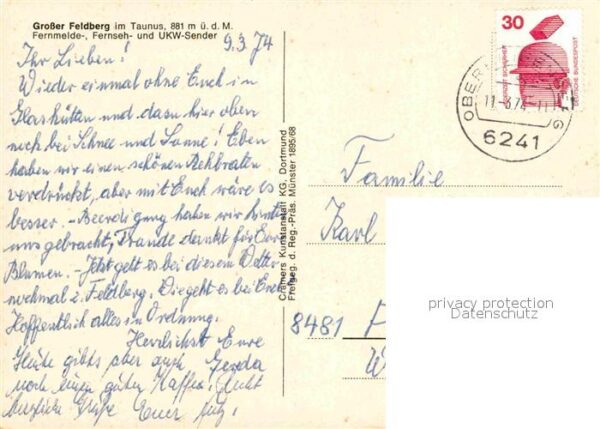 Großer Feldberg im Taunus, 881 m ü. d. M.
Fernmelde-, Fernseh- und UKW-Sender
9.3.74
Ihr Lieben!
Wieder einmal ohne Euch in
Glashütten und dazu hier oben
noch bei Schnee und Sonne! Eben
haben wir einen schönen Rehbraten
verdrückt, aber mit Euch wäre es
besser. - Beerdigung haben wir hinter
uns gebracht, Traude dankt für Eure
Blumen. - Jetzt geht es bei diesem Wetter
nochmal z. Feldberg. Wie geht es bei Euch
Hoffentlich alles in Ordnung.
Herzlichst Eure
Gerda
Heute gibts aber auch
noch einen guten Kaffee!
herzliche Grüße Euer
Cramers Kunstanstalt KG, Dortmund
Freigeg. d. Reg.-Präs. Münster 1895/68
30
DEUTSCHE BUNDESPOST
11.-3.74-11
6241
Familie
Karl
8481
privacy protection
Datenschutz